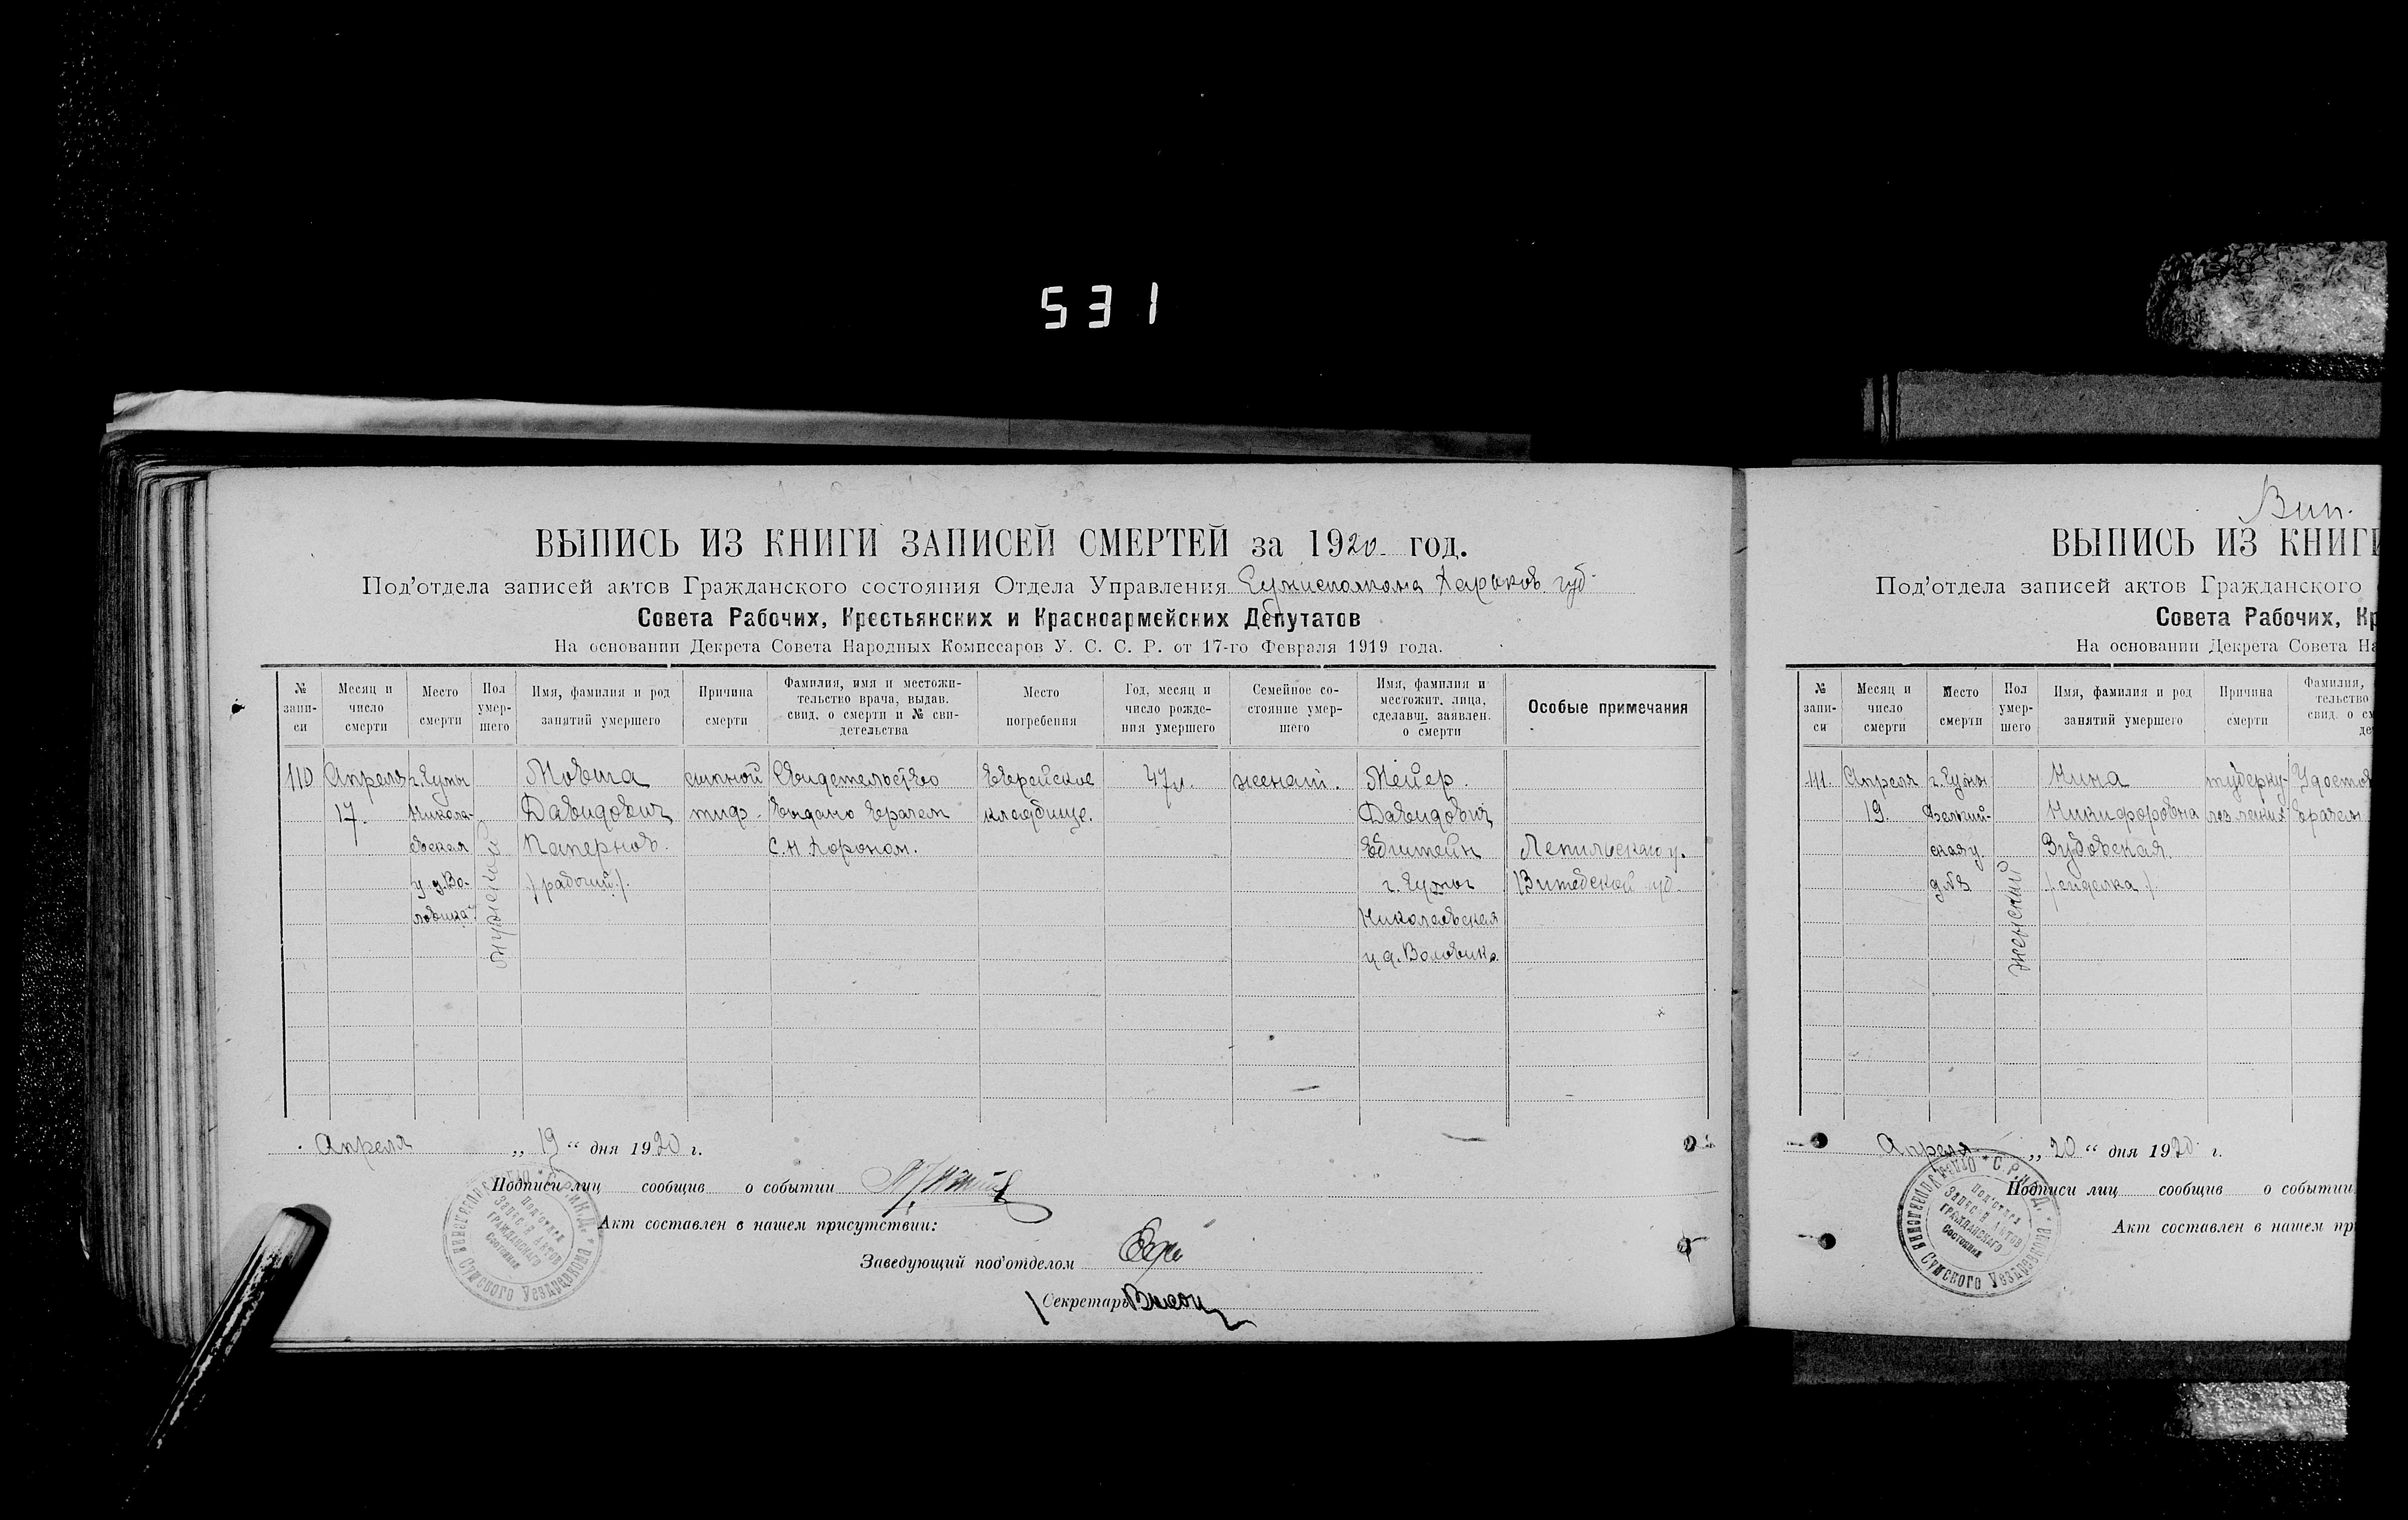 531
ВЫПИСЬ ИЗ КНИГИ ЗАПИСЕЙ СМЕРТЕЙ за 1920 год.
Под'отдела записей актов Гражданского состояния Отдела Управления Сумисполкома Харьков. губ.
Совета Рабочих, Крестьянских и Красноармейских Депутатов
На основании Декрета Совета Народных Комиссаров У. С. С. Р. от 17-го Февраля 1919 года.
№ запи-си
Месяц и число смерти
Место смерти
Пол умер-шего
Имя, фамилия и род занятий умершего
Причина смерти
Фамилия, имя и местожи-тельство врача, выдав. свид. о смерти и № сви-детельства
Место погребения
Год, месяц и число рожде-ния умершего
Семейное со-стояние умер-шего
Имя, фамилия и местожит. лица, сделавш. заявлен. о смерти
Особые примечания
110
Апреля
17.
г. Сумы
Никола-
евская
у. д. Во-
ловика
мужской
Мовша
Давидович
Папернов.
/рабочий/.
сыпной
тиф.
Свидетельство
выдано врачем
С. Н.
Еврейское
кладбище.
47 л.
женат.
Мейер
Давидович
г. Сумы
Николаевская
у. д. Воловика
Лепильскаго у.
Витебской губ.
Апреля „ 19 “ дня 1920 г.
Подписи лиц сообщив о событии
Акт составлен в нашем присутствии:
Заведующий под'отделом
Секретарь
Сумского Уездревкома
Под'отдел
Записи Актов
Гражданскаго
Состояния
Вип.
ВЫПИСЬ ИЗ КНИГИ
Под'отдела записей актов Гражданского
Совета Рабочих, Кр
На основании Декрета Совета На
№ запи-си
Месяц и число смерти
Место смерти
Пол умер-шего
Имя, фамилия и род занятий умершего
Причина смерти
Фамилия,
тельство
свид. о см
де
111.
Апреля
19.
г. Сумы
ская у.
д №8
женский
Нина
Никифоровна
Зубовская.
/сиделка/.
туберку-
лез легких
Удостов
врачем
Апреля „ 20 “ дня 1920 г.
Подписи лиц сообщив о событии
Акт составлен в нашем пр
Сумского Уездревкома
Под'отдел
Записи Актов
Гражданскаго
Состояния